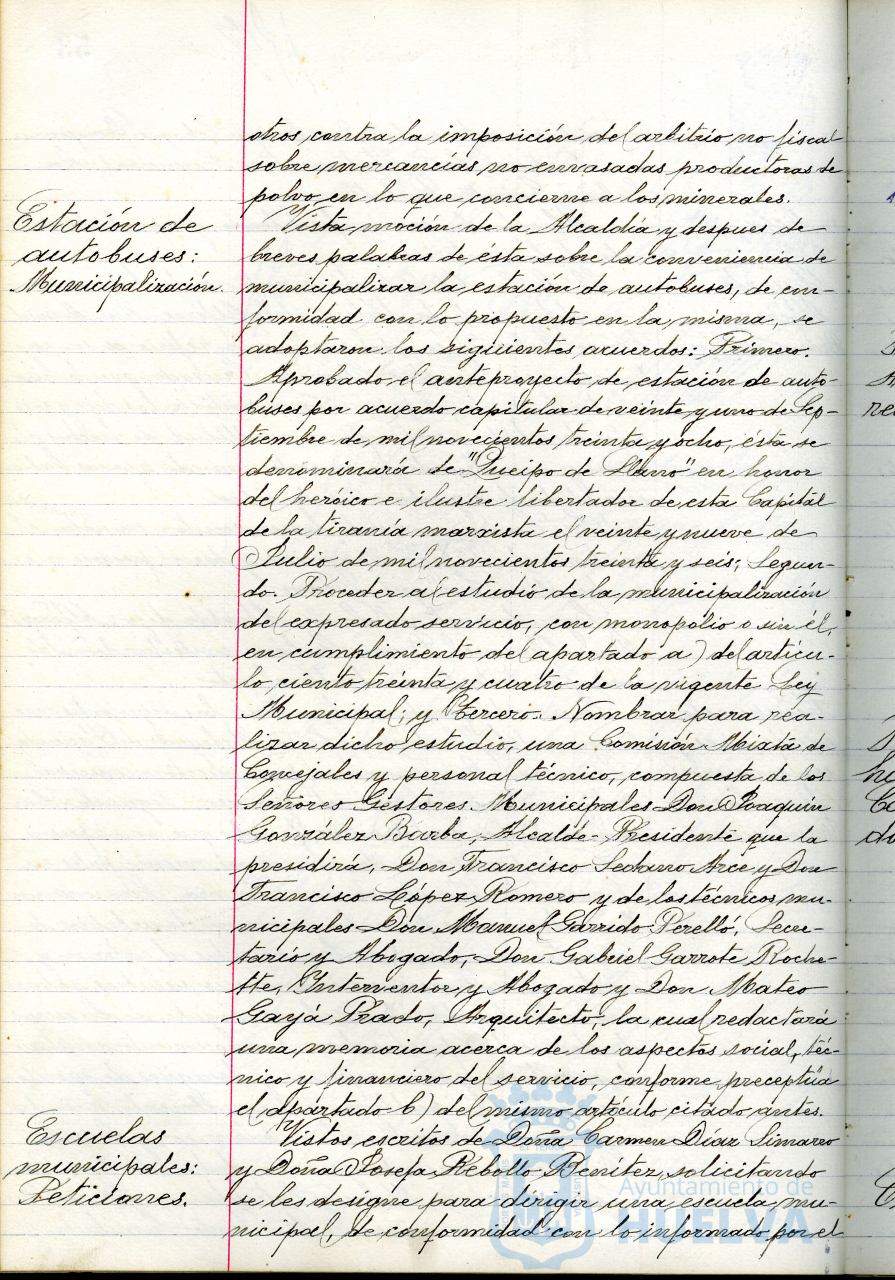 otros contra la imposición del arbitrio no fiscal
sobre mercancías no envasadas productoras de
polvo en lo que concierne a los minerales.
Estación de
autobuses:
Municipalización.
Vista moción de la Alcaldía y despues de
breves palabras de ésta sobre la conveniencia de
municipalizar la estación de autobuses, de con-
formidad con lo propuesto en la misma, se
adoptaron los siguientes acuerdos: Primero.
Aprobado el anteproyecto de estación de auto-
buses por acuerdo capitular de veinte y uno de Sep-
tiembre de mil novecientos treinta y ocho, ésta se
denominará de "Queipo de Llano" en honor
del heróico e ilustre libertador de esta Capital
de la tiranía marxista el veinte y nueve de
Julio de mil novecientos treinta y seis; Segun-
do. Proceder al estudio de la municipalización
del expresado servicio, con monopolio o sin él,
en cumplimiento del apartado a) del artícu-
lo ciento treinta y cuatro de la vigente Ley
Municipal; y Tercero. Nombrar para rea-
lizar dicho estudio, una Comisión Mixta de
Concejales y personal técnico, compuesta de los
Señores Gestores Municipales Don Joaquín
González Barba, Alcalde-Presidente que la
presidirá, Don Francisco Sedano Arce y Don
Francisco López Romero y de los técnicos mu-
nicipales Don Manuel Garrido Perelló, Secre-
tario y Abogado, Don Gabriel Garrote Roche-
tte, Interventor y Abogado y Don Mateo
Gayá Prado, Arquitecto, la cual redactará
una memoria acerca de los aspectos social, téc-
nico y financiero del servicio, conforme preceptúa
el apartado b) del mismo artículo citado antes.
Escuelas
municipales:
Peticiones.
Vistos escritos de Doña Carmen Díaz Simarro
y Doña Josefa Rebollo Benítez solicitando
se les designe para dirigir una escuela mu-
nicipal, de conformidad con lo informado por el
Ayuntamiento de
HUELVA